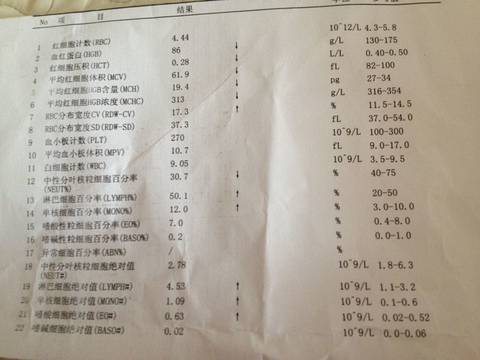 No 项 目 结果
1 红细胞计数(RBC) 4.44 10^12/L 4.3-5.8
2 血红蛋白(HGB) 86 ↓ g/L 130-175
3 红细胞压积(HCT) 0.28 ↓ L/L 0.40-0.50
4 平均红细胞体积(MCV) 61.9 ↓ fL 82-100
5 平均红细胞HGB含量(MCH) 19.4 ↓ pg 27-34
6 平均红细胞HGB浓度(MCHC) 313 ↓ g/L 316-354
7 RBC分布宽度CV(RDW-CV) 17.3 ↑ % 11.5-14.5
8 RBC分布宽度SD(RDW-SD) 37.3 fL 37.0-54.0
9 血小板计数(PLT) 270 10^9/L 100-300
10 平均血小板体积(MPV) 10.7 fL 9.0-17.0
11 白细胞计数(WBC) 9.05 10^9/L 3.5-9.5
12 中性分叶核粒细胞百分率 30.7 ↓ % 40-75
(NEUT%)
13 淋巴细胞百分率(LYMPH%) 50.1 ↑ % 20-50
14 单核细胞百分率(MONO%) 12.0 ↑ % 3.0-10.0
15 嗜酸性粒细胞百分率(EO%) 7.0 % 0.4-8.0
16 嗜碱性粒细胞百分率(BASO%) 0.2 % 0.0-1.0
17 异常细胞百分率(ABN%) / %
18 中性分叶核粒细胞绝对值 2.78 10^9/L 1.8-6.3
(NEUT#)
19 淋巴细胞绝对值(LYMPH#) 4.53 ↑ 10^9/L 1.1-3.2
20 单核细胞绝对值(MONO#) 1.09 ↑ 10^9/L 0.1-0.6
21 嗜酸细胞绝对值(EO#) 0.63 ↑ 10^9/L 0.02-0.52
22 嗜碱细胞绝对值(BASO#) 0.02 10^9/L 0.0-0.06